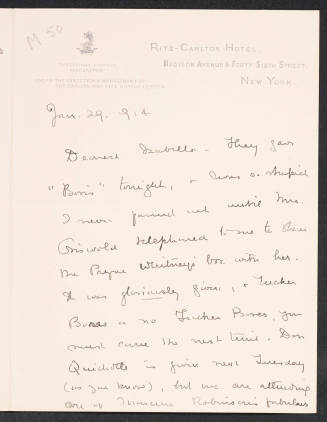 M 50
RITZ-CARLTON HOTEL.
MADISON AVENUE & FORTY SIXTH STREET.
NEW YORK
UNDER THE DIRECTION & MANAGEMENT OF
THE CARLTON AND RITZ HOTELS LONDON.
Jan. 29. 914
Dearest Isabella - They gave
"Boris" tonight, & I was so stupid
I never until Mrs.
Griswold telephoned to me to share
the Payne Whitney's box with her.
It was gloriously given, &
Boris you
must come the next time. Don
Quichotte is given next Tuesday
(as you know), but we are attending
one of Robinson's fabulous